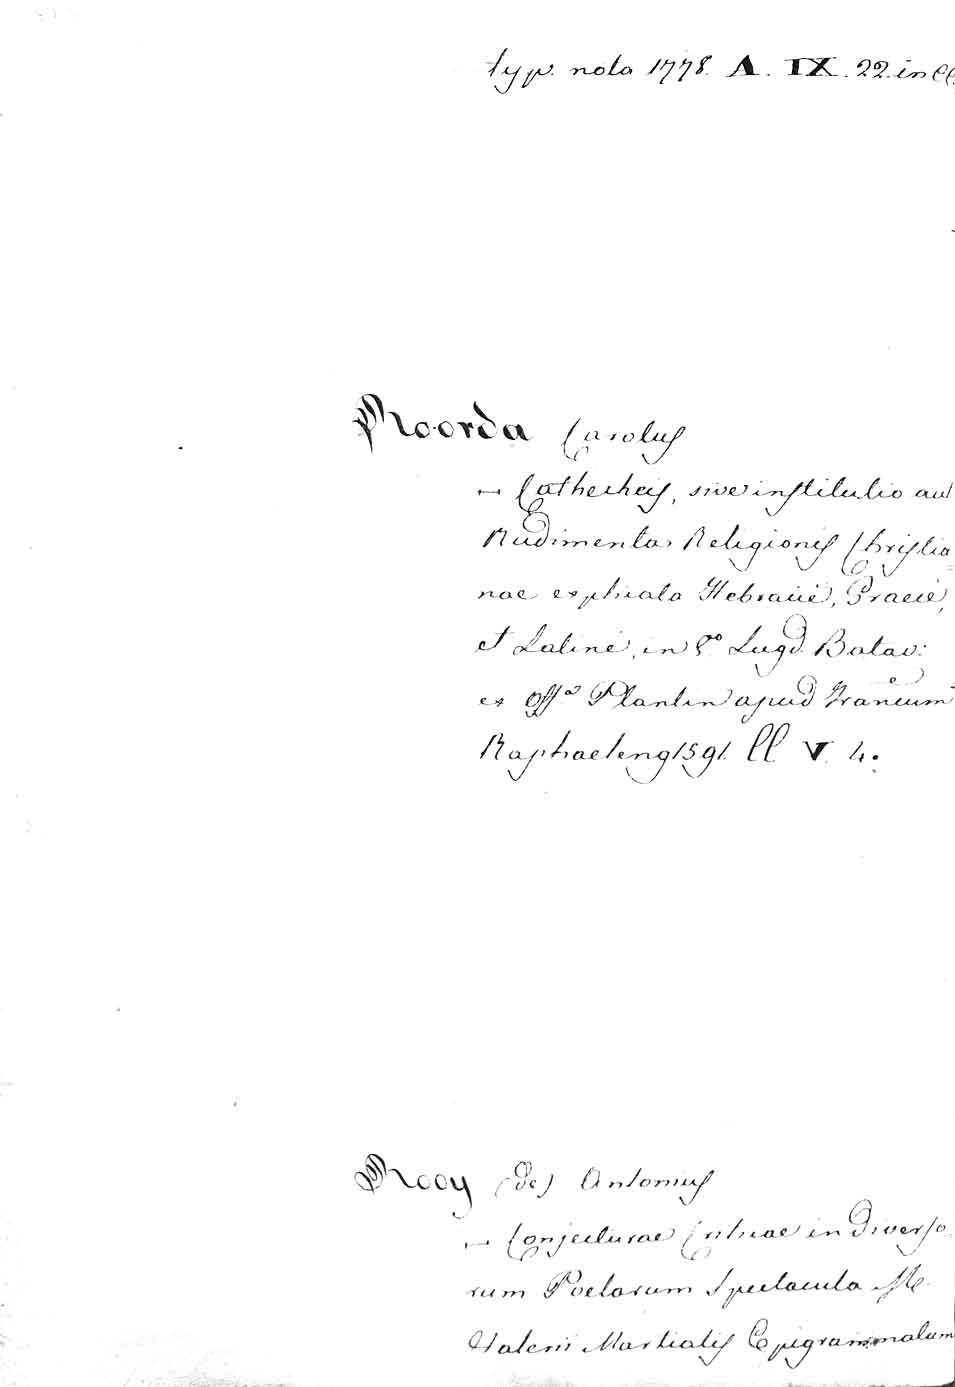 typ. nota 1778. A. IX. 22. in
Roorda Carolus
— Cathecheis, sive institutio aut
Rudimenta Religionis Christia
nae explicata Hebraicè, Graecè,
et Latinè, in 8.º Lugd. Batav:
ex Off.ª Plantin apud Francum
Raphaeleng 1591. ll. V. 4.
Rooy (de) Antonius
— Conjecturae Criticae in Diverso
rum Poetarum Spectacula M.
Valerii Martialis Epigrammatum